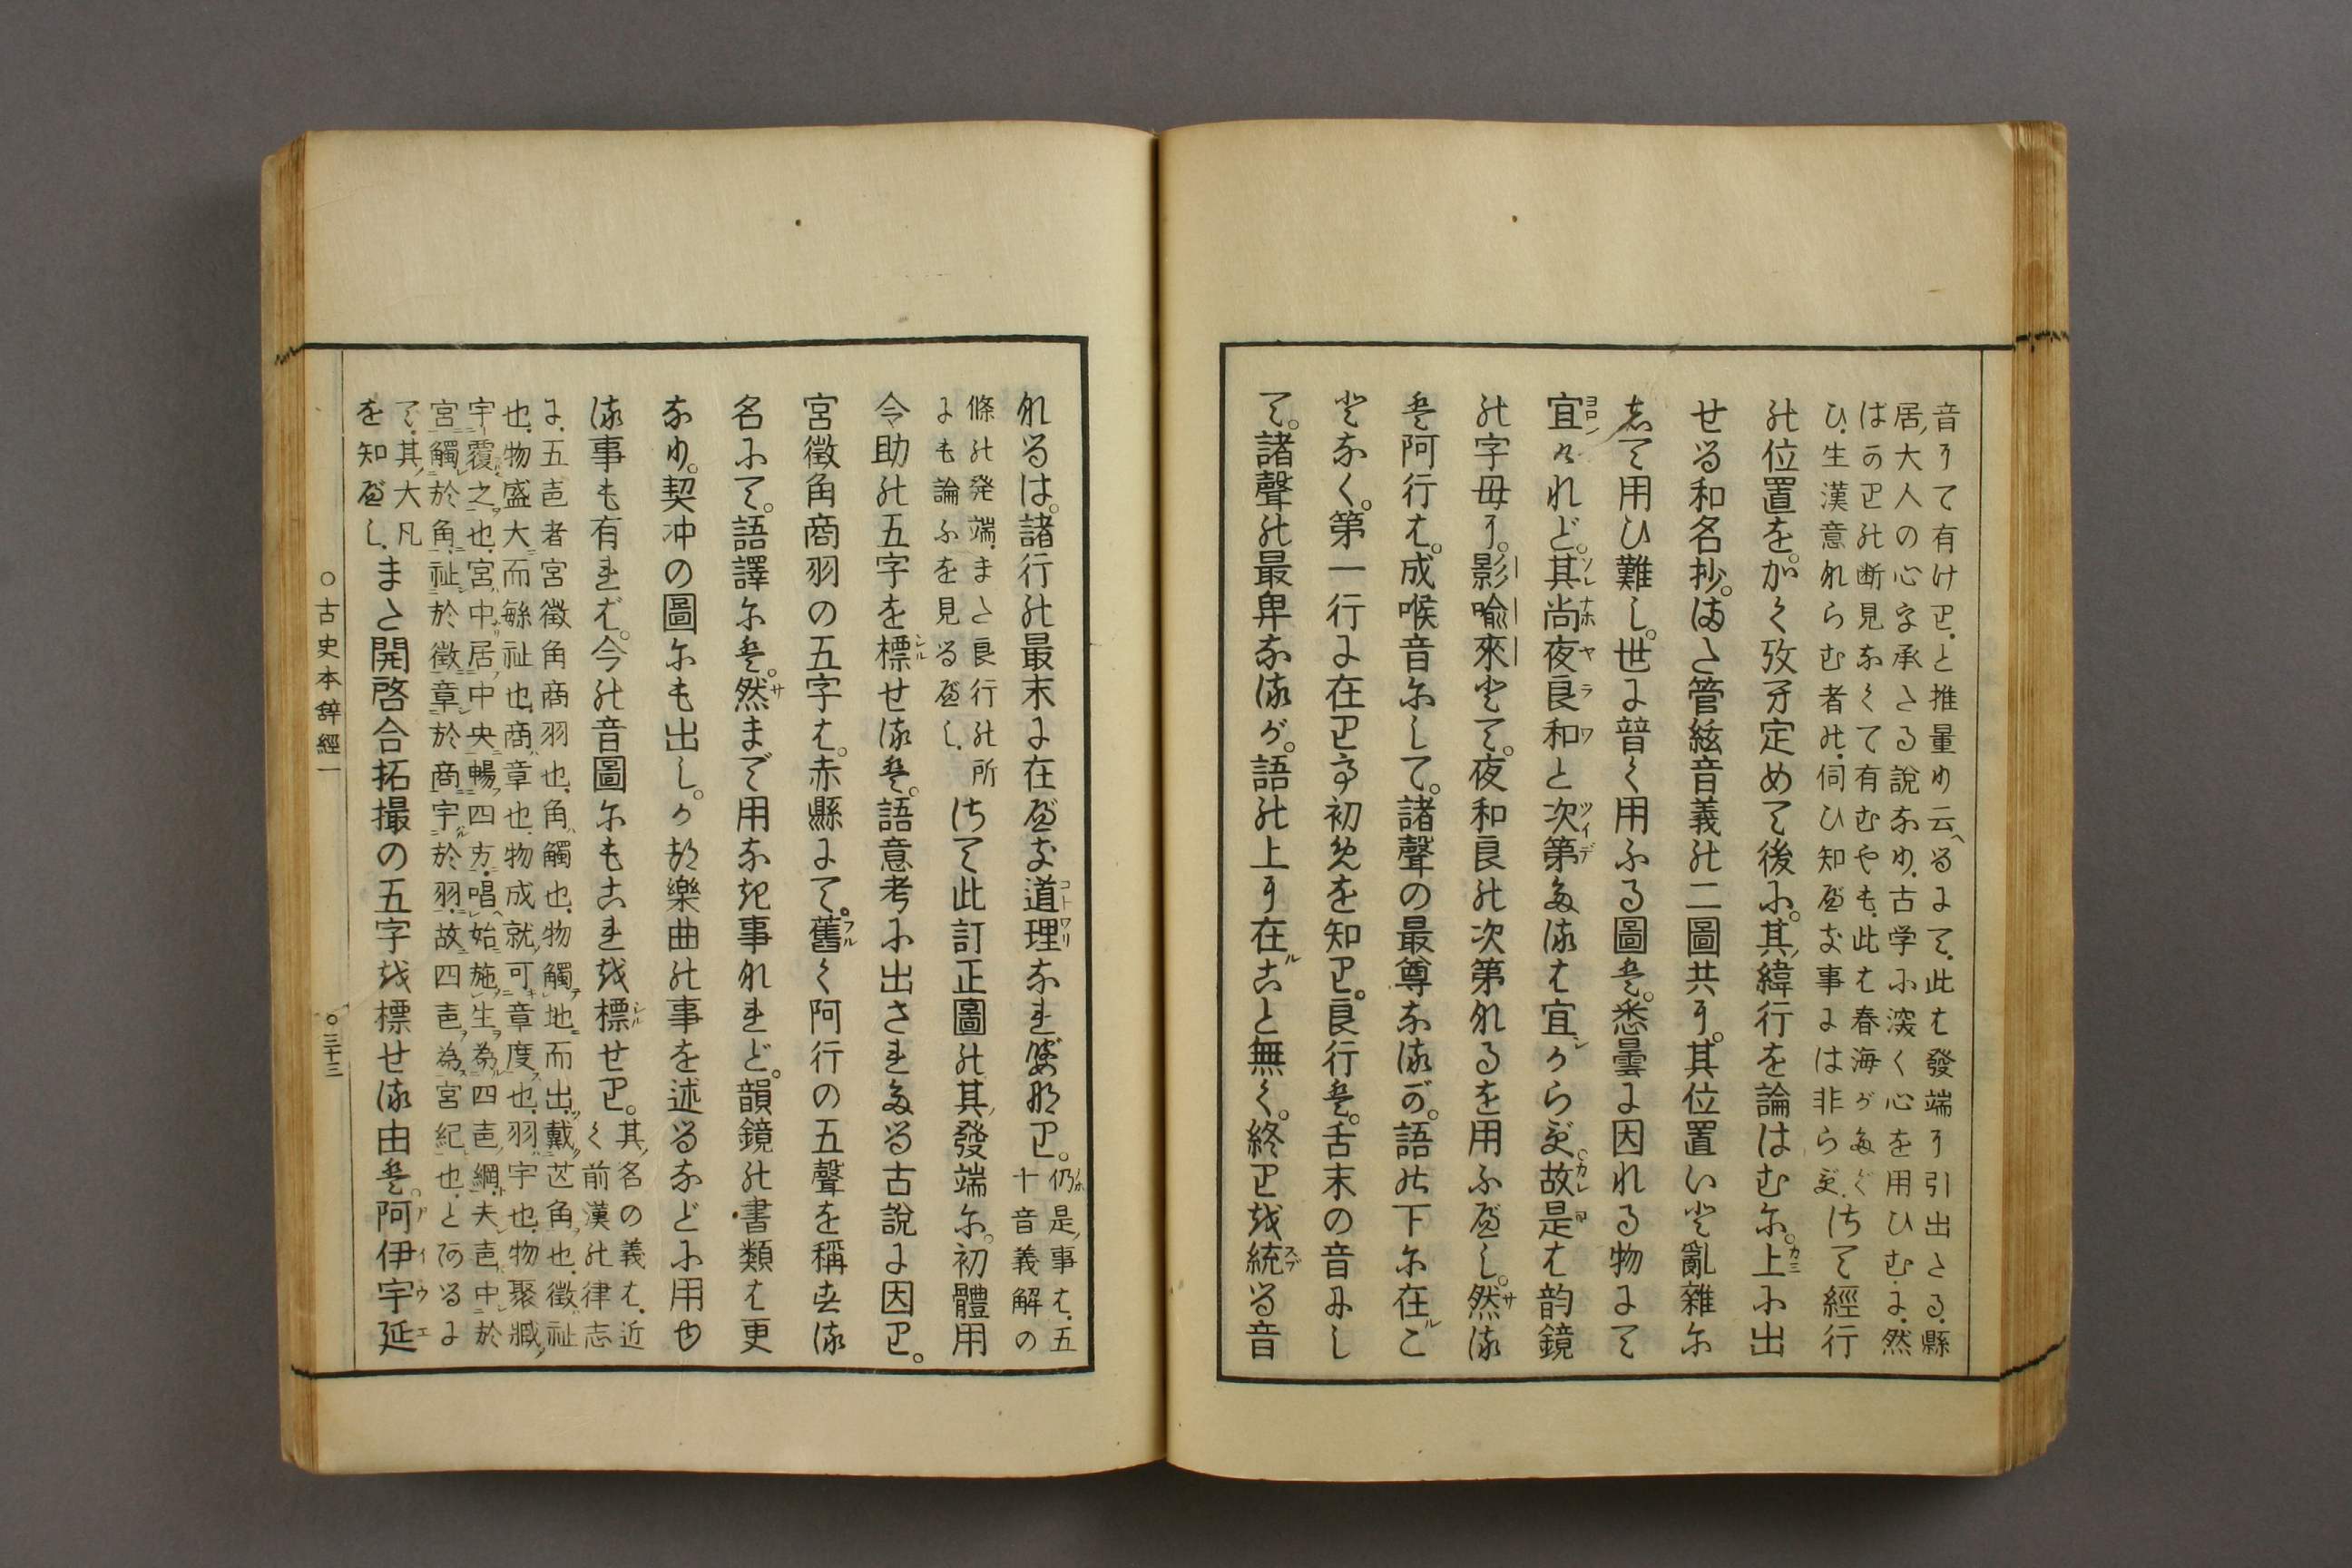 音すて有けり、と推量り云へるにて、此は發端す引出たる、縣
居ノ大人の心字承たる說なり、古学に深く心を用ひむに、然
ばかりの断見なくて有むやも、此は春海がたぐ
ひ、生漢意ならむ者の、伺ひ知べき事には非らず、さて經行
の位置を。かく攷牙定めて後に。其ノ緯行を論はむに。上に出
せる和名抄。また管絃音義の二圖共す。其位置いと亂雜に
して用ひ難し。世に普く用ふる圖は。悉曇に因れる物にて
宜けれど。其尚夜良和と次第たるは宜からず。故是は韵鏡
の字母す。影喩來とて。夜和良の次第なるを用ふべし。然る
は阿行は。成喉音にして。諸聲の最尊なるが。語の下に在こ
となく。第一行に在り亭初めを知り。良行は。舌末の音にし
て。諸聲の最卑なるが。語の上す在こと無く。終りを統る音
なるは。諸行の最末に在べき道理なればなり。仍是ノ事は、五
十音義解の
條の発端、また良行の所
にも論ふを見るべし、さて此訂正圖の其ノ發端に。初體用
令助の五字を標せるは。語意考に出されたる古說に因り。
宮徵角商羽の五字は。赤縣にて。舊く阿行の五聲を稱する
名にて。語譯には。然まで用なき事なれど。韻鏡の書類は更
なり。契冲の圖にも出し。か故樂曲の事を述るなどに用や
る事も有れば。今の音圖にもこれを標せり。其ノ名の義は、近
く前漢の律志
に、五音者宮徵角商羽也、角ハ觸也、物觸地而出、戴芒角也、徵ハ祉
也、物盛大而緐祉也、商ハ章也、物成就可章度也、羽ハ宇也、物聚臧
宇覆之也、宮ハ中居中央暢四方、唱始施生為四音綱、夫音中於
宮觸於角、祉於徵、章於商、宇於羽、故四音為宮紀也、とあるに
て、其ノ大凡
を知べし、また開啓合拓撮の五字を標せる由は。阿伊宇延
○古史本辭經一
○三十三